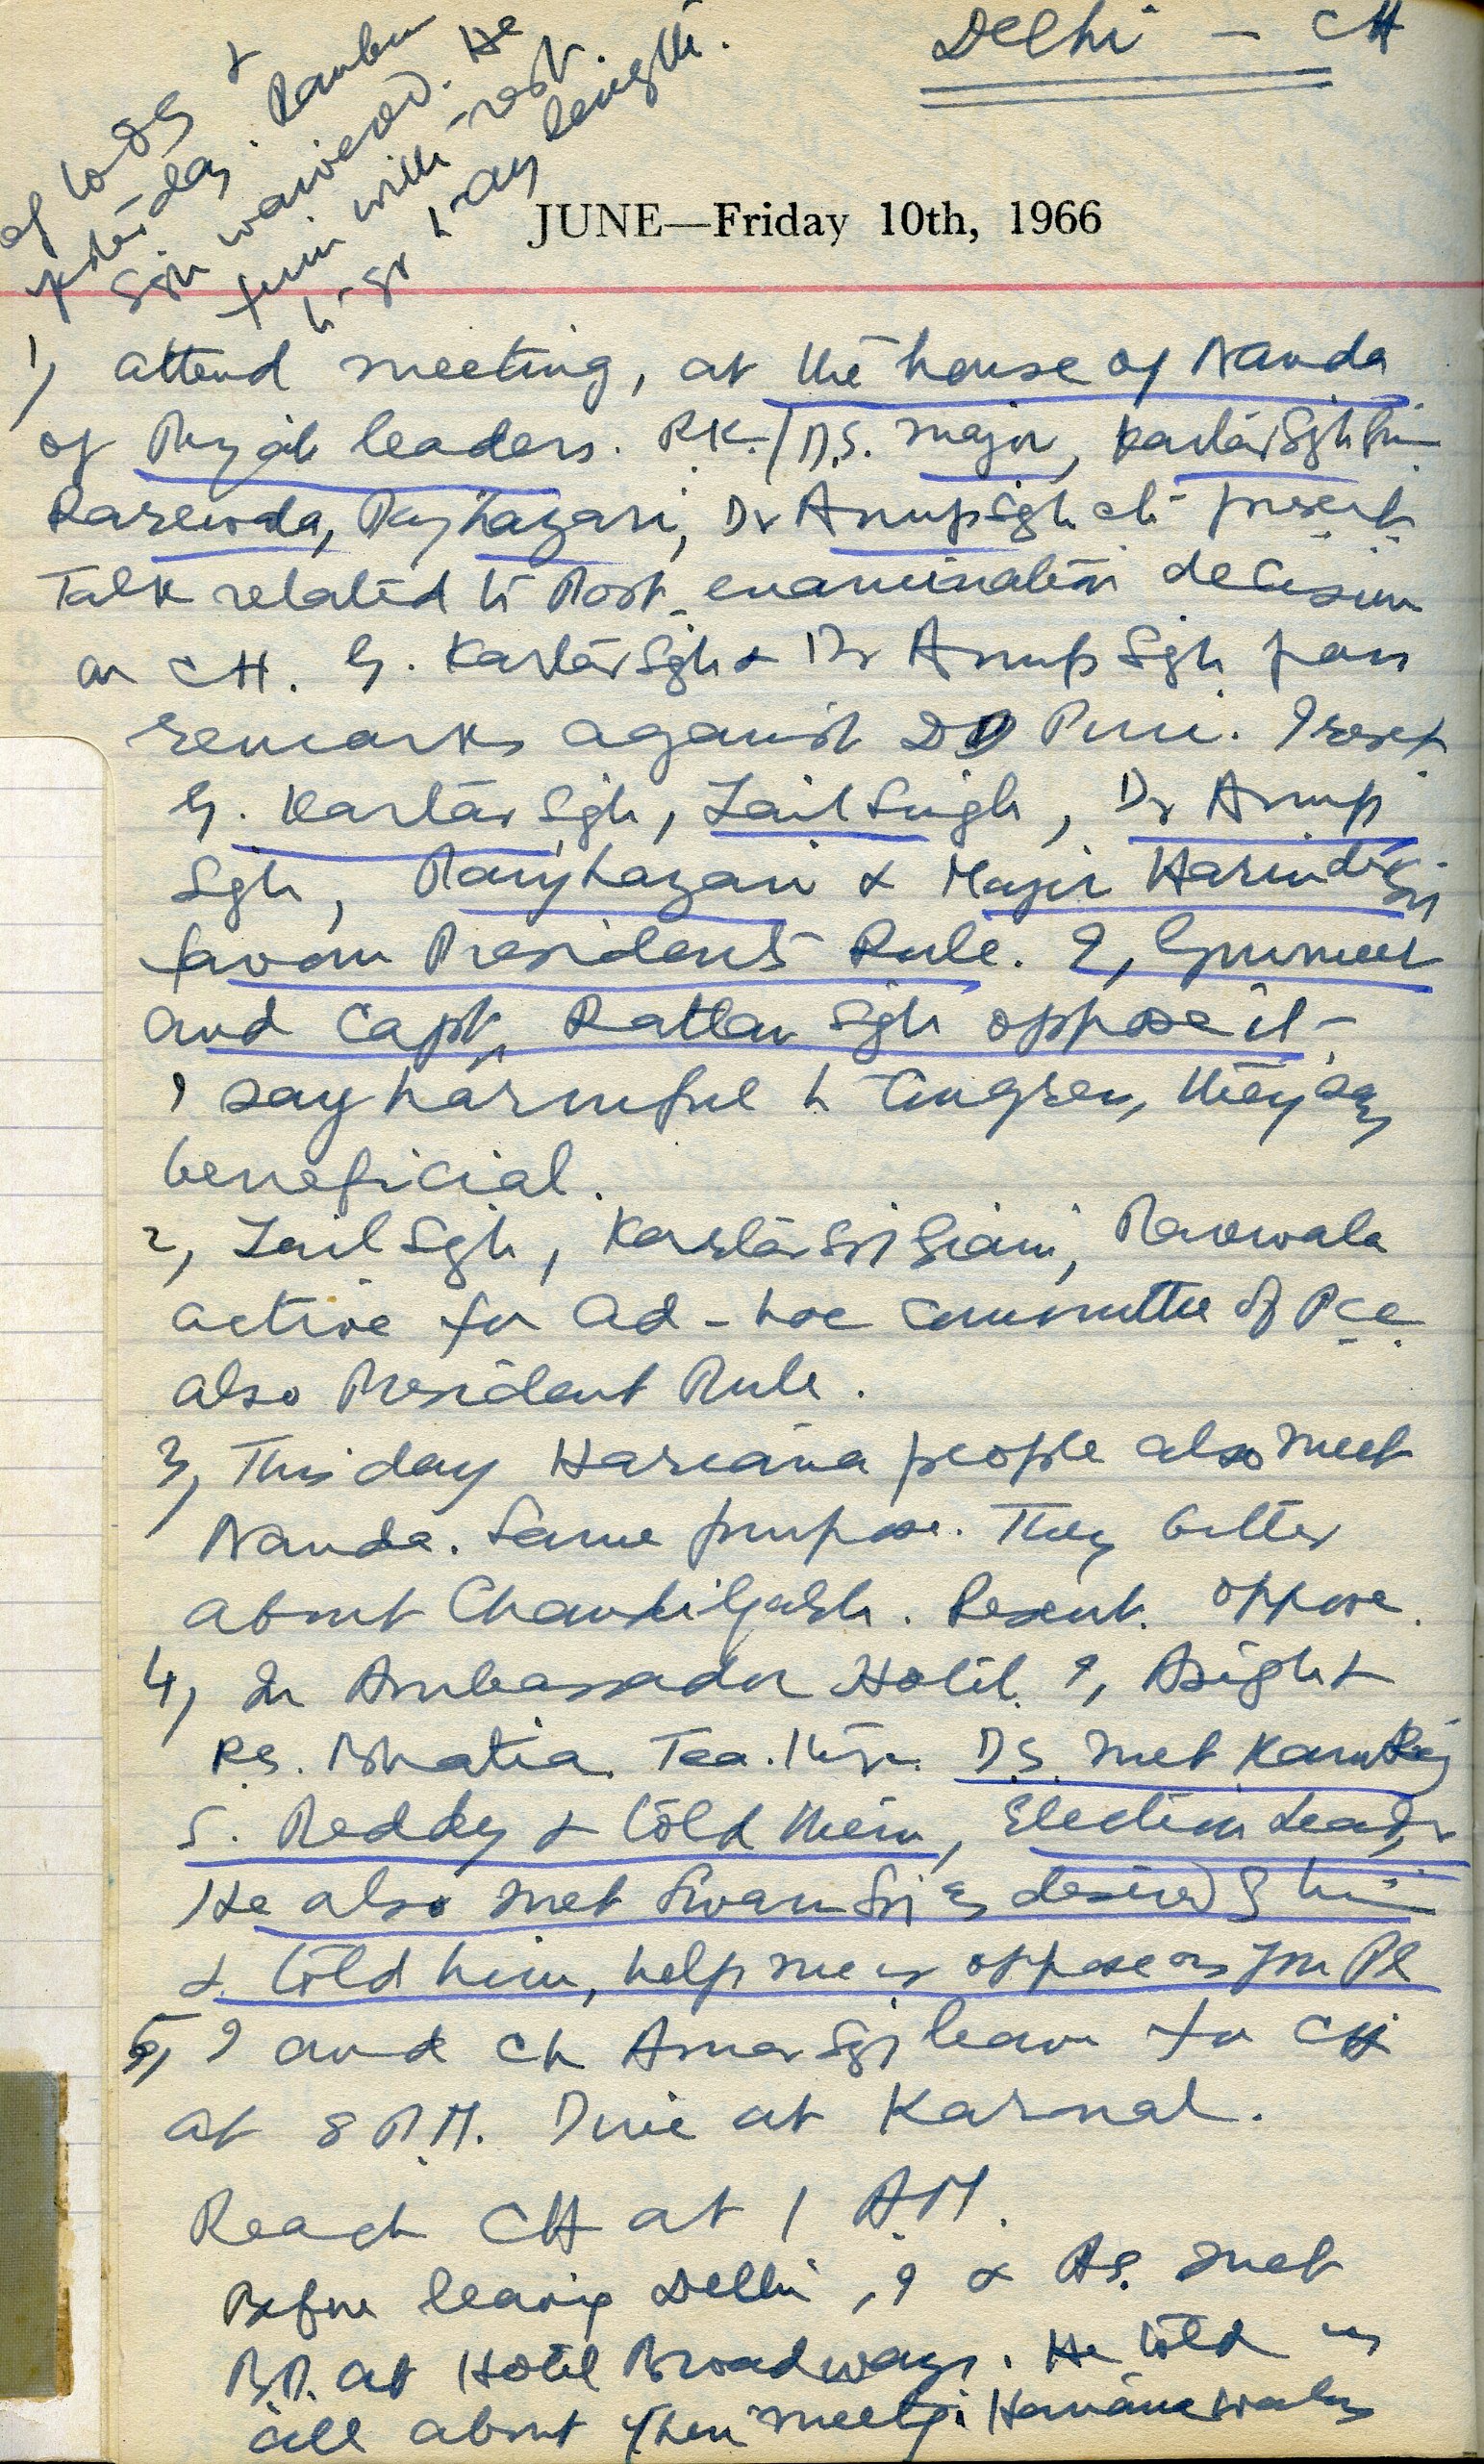 Delhi - CH
JUNE—Friday 10th, 1966
of today &
yesterday. Ranbir
Sgh waivered. He
firm with rest.
at any length.
1, attend meeting, at the house of Nanda
of Punjab leaders. R.K./D.S. Major, Kartar Sgh
Rarewala, Hazari, Dr Anup Sgh etc present
Talk related to Post examination decision
on CH. G. Kartar Sgh & Dr Anup Sgh pass
remarks against DD Puri. I resent
G. Kartar Sgh, Zail Singh, Dr Anup
Sgh, Hazari & Major Harinder Sgh
favour Presidents Rule. I, Gurmeet
and Capt. Rattan Sgh oppose it -
I say harmful to Congress, they say
beneficial.
2, Zail Sgh, Kartar Sgh Giani, Rarewala
active for ad-hoc committee of Pcc
also President Rule.
3, This day Hariana people also meet
Nanda. Same purpose. They bitter
about Chandigarh. Resent. oppose.
4, In Ambassador Hotel. I, &
R.S. Bhatia. Tea. D.S. met Kamraj
S. Reddy & told them, Election Leader
He also met Swaran Sgh desired him
& told him, help me or oppose as you Pl
5, I and Ch Amar Sgh leave for CH
at 8 P.M. Dine at Karnal.
Reach CH at 1 A.M.
Before leaving Delhi, I & AS. met
B.D. at Hotel Broadways. He told us
all about their meeting Hariana walas